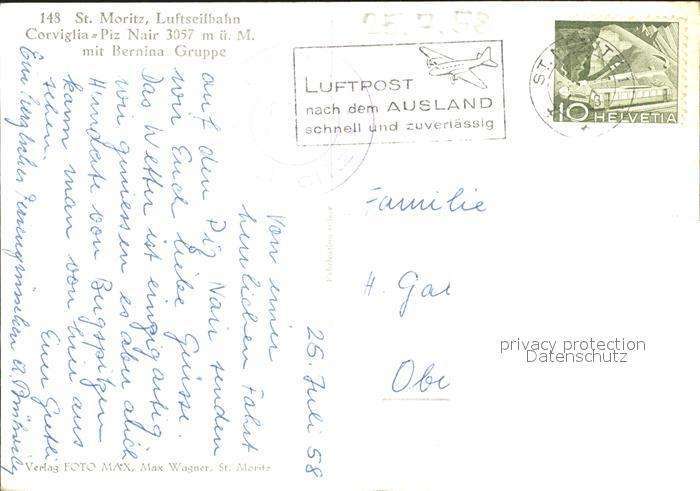 148 St. Moritz, Luftseilbahn
Corviglia-Piz Nair 3057 m ü. M.
mit Bernina Gruppe
LUFTPOST
nach dem AUSLAND
schnell und zuverlässig
ST. MORITZ 1
10 HELVETIA
26. Juli 58
Von einer
herrlichen Fahrt
auf den Piz Nair senden
wir Euch liebe Grüsse.
Das Wetter ist einzigartig
wir geniessen es aber auch
Hunderte von Bergspitzen
kann man von hier aus
sehen. Euer Gretli
Familie
H. Gal
Obe
privacy protection
Datenschutz
Verlag FOTO MAX, Max Wagner, St. Moritz